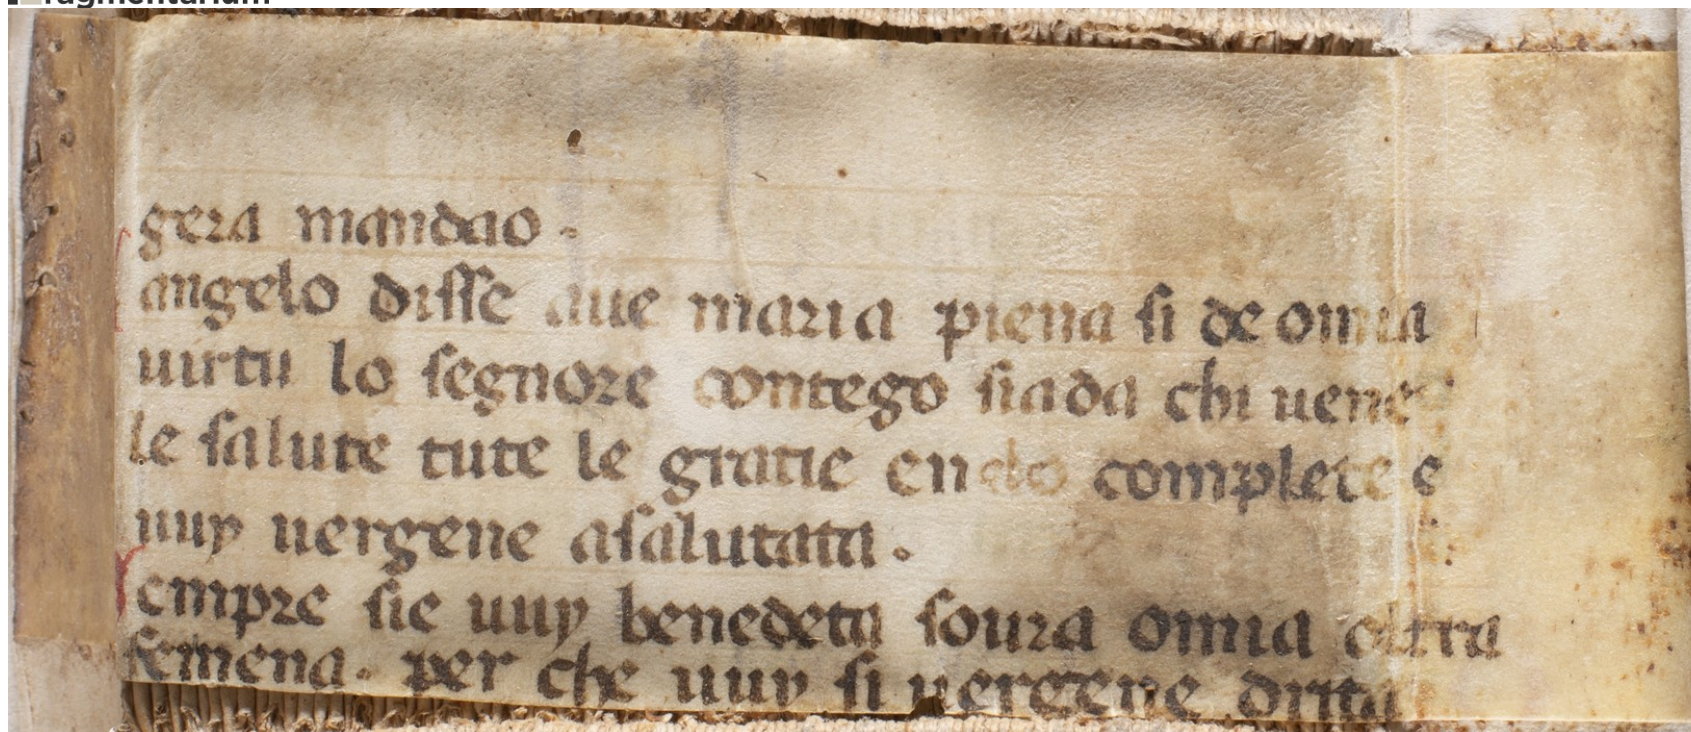 ragmentarium
gera mandao.
angelo disse aue maria piena si de omia
uirtu lo segnore contego sia da chi uene
le salute tute le gratie en do complete e
uuy uergene asalutata.
empre sie uuy benedeta soura omia altra
femena. per che uuy si uergene drita